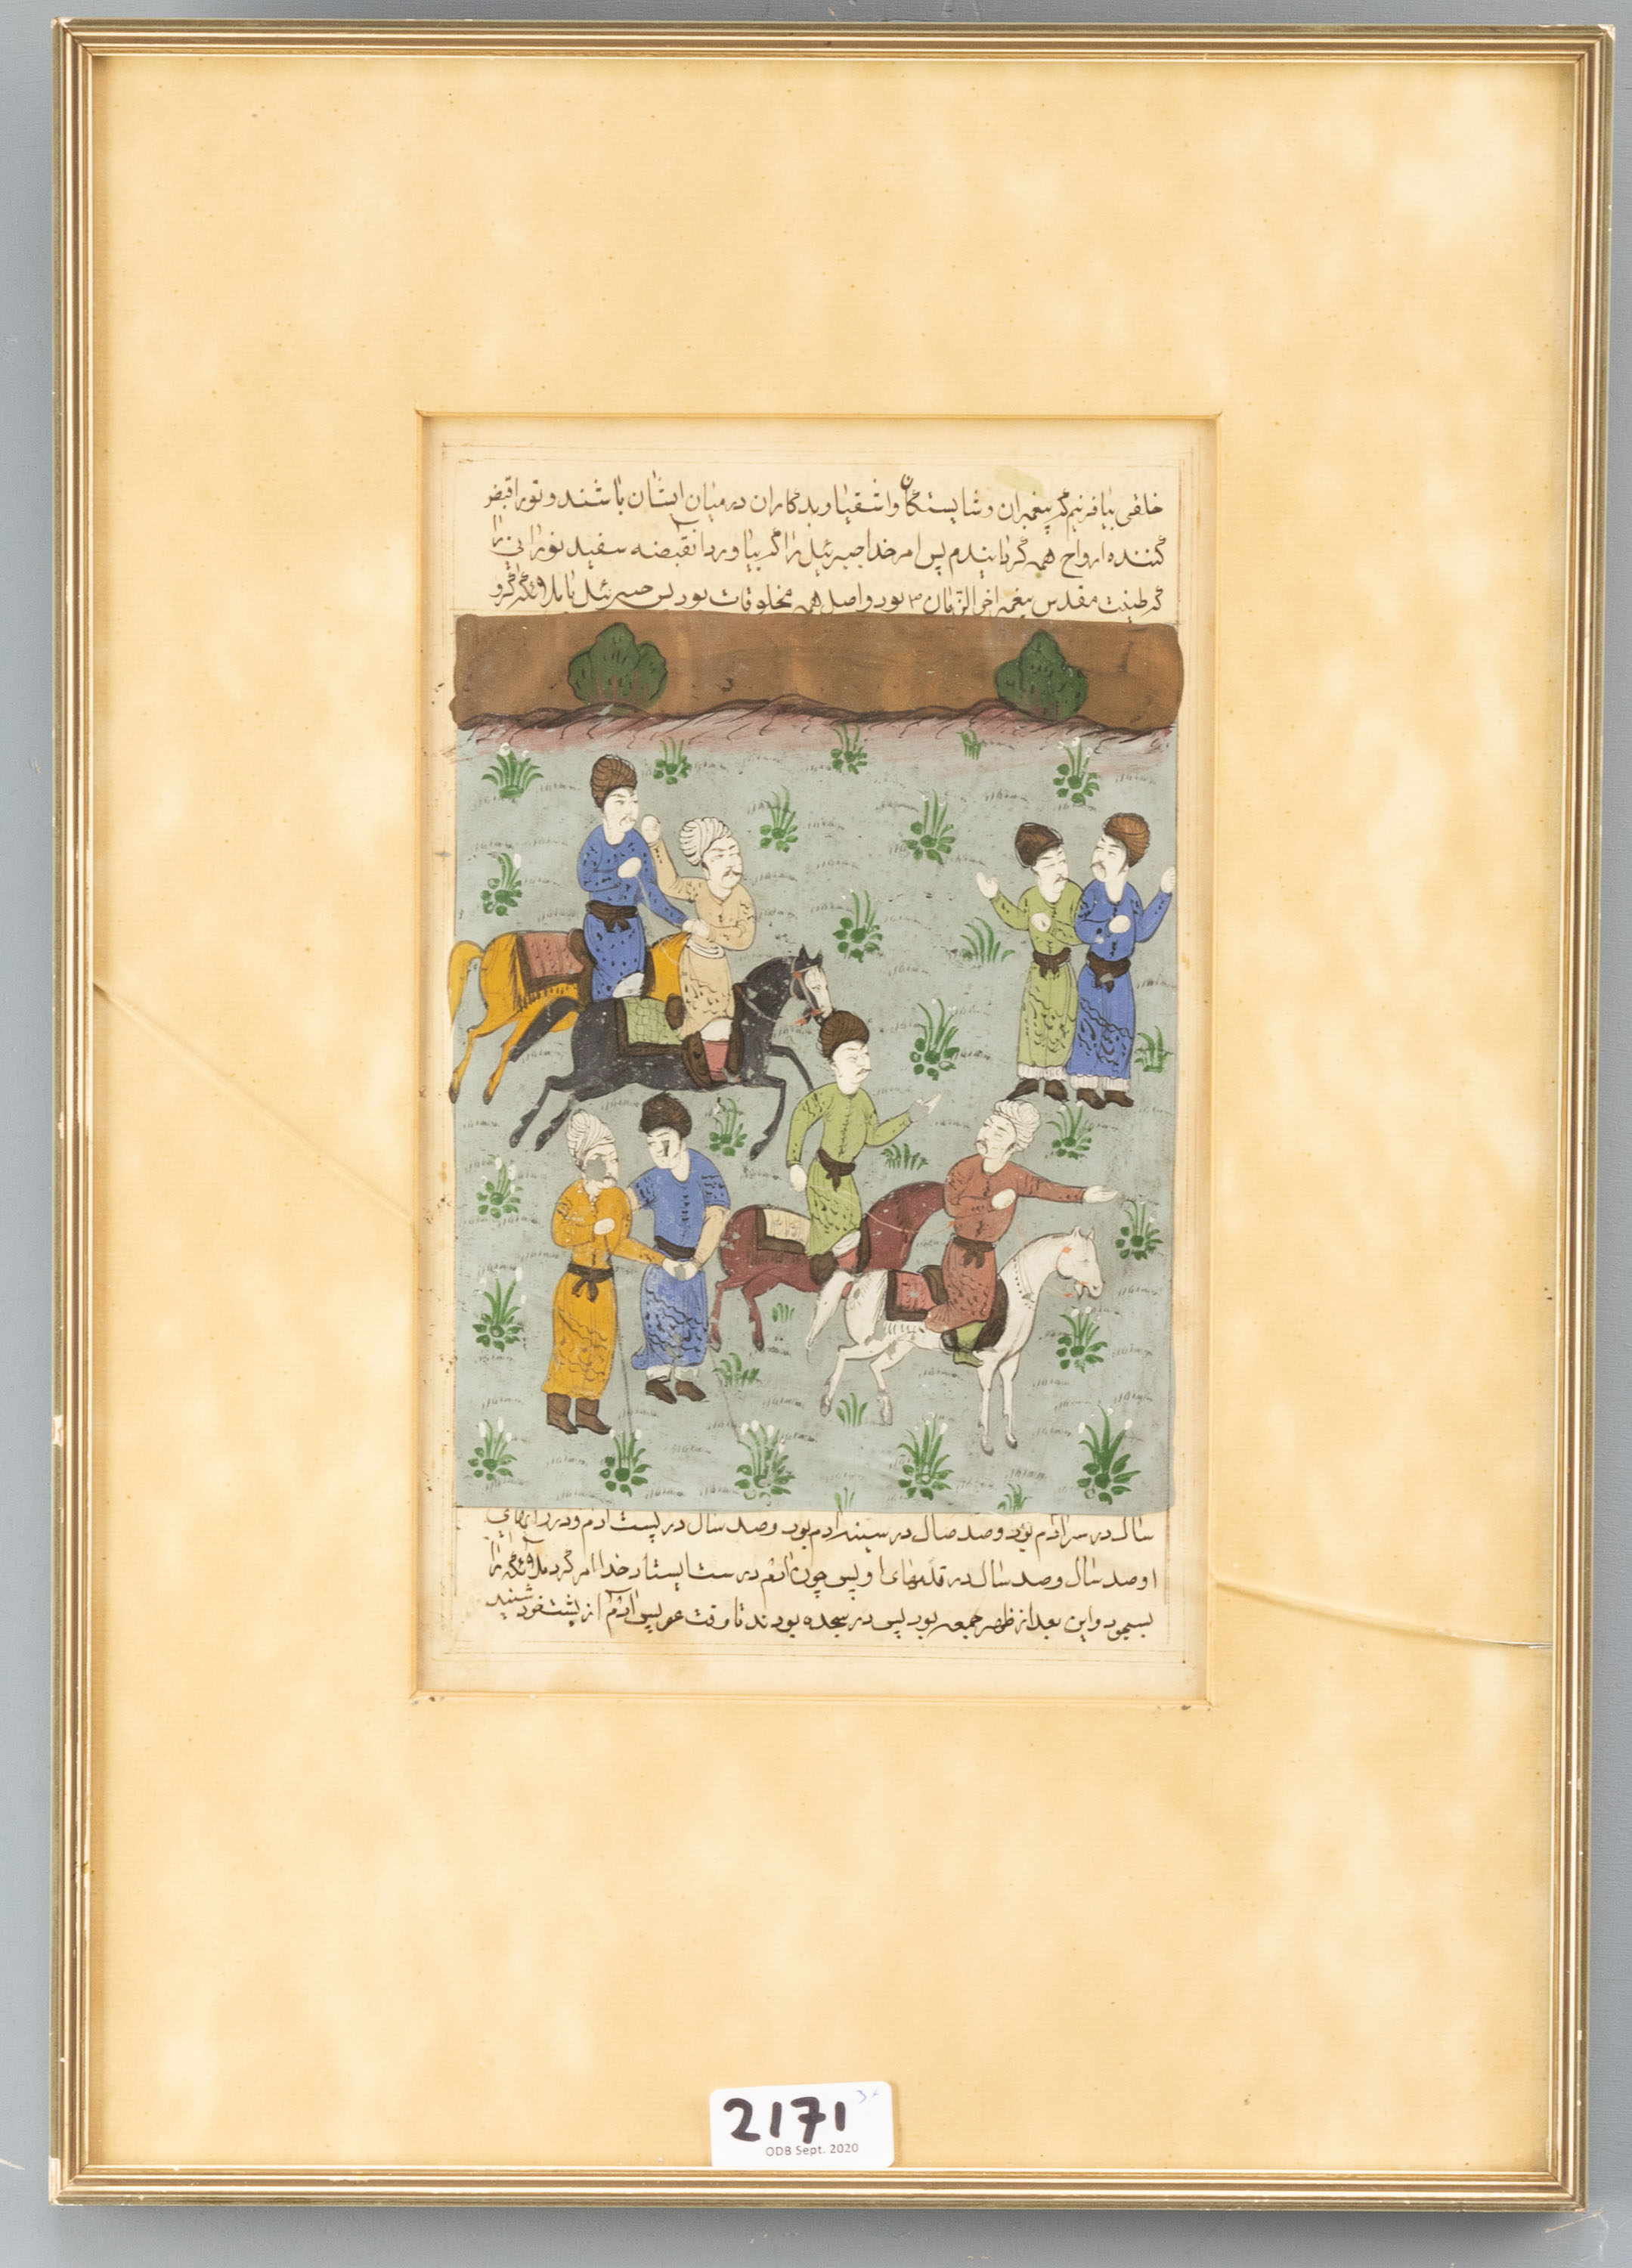 خلقی بیافرینم که پیغمبران و شایستگان و اشقیا و بدکاران در میان ایشان باشند و تو را قبض
کننده ارواح همه گردانیدم پس امر خدا جبرئیل را که بیاورد آن قبضه سفید نورانی را
که طینت مقدس پیغمبر اخر الزمان بود و اصل همه مخلوقات بود پس جبرئیل با ملائکه
سال در سر آدم بود و صد سال در سینه آدم بود و صد سال در پشت آدم و در
او صد سال و صد سال در قدمهای او پس چون آدم درست ایستاد خدا امر کرد ملائکه را
بسجود و این بعد از ظهر جمعه بود پس در سجده بودند تا وقت عصر پس آدم از پشت خود شنید
2171
ODB Sept. 2020